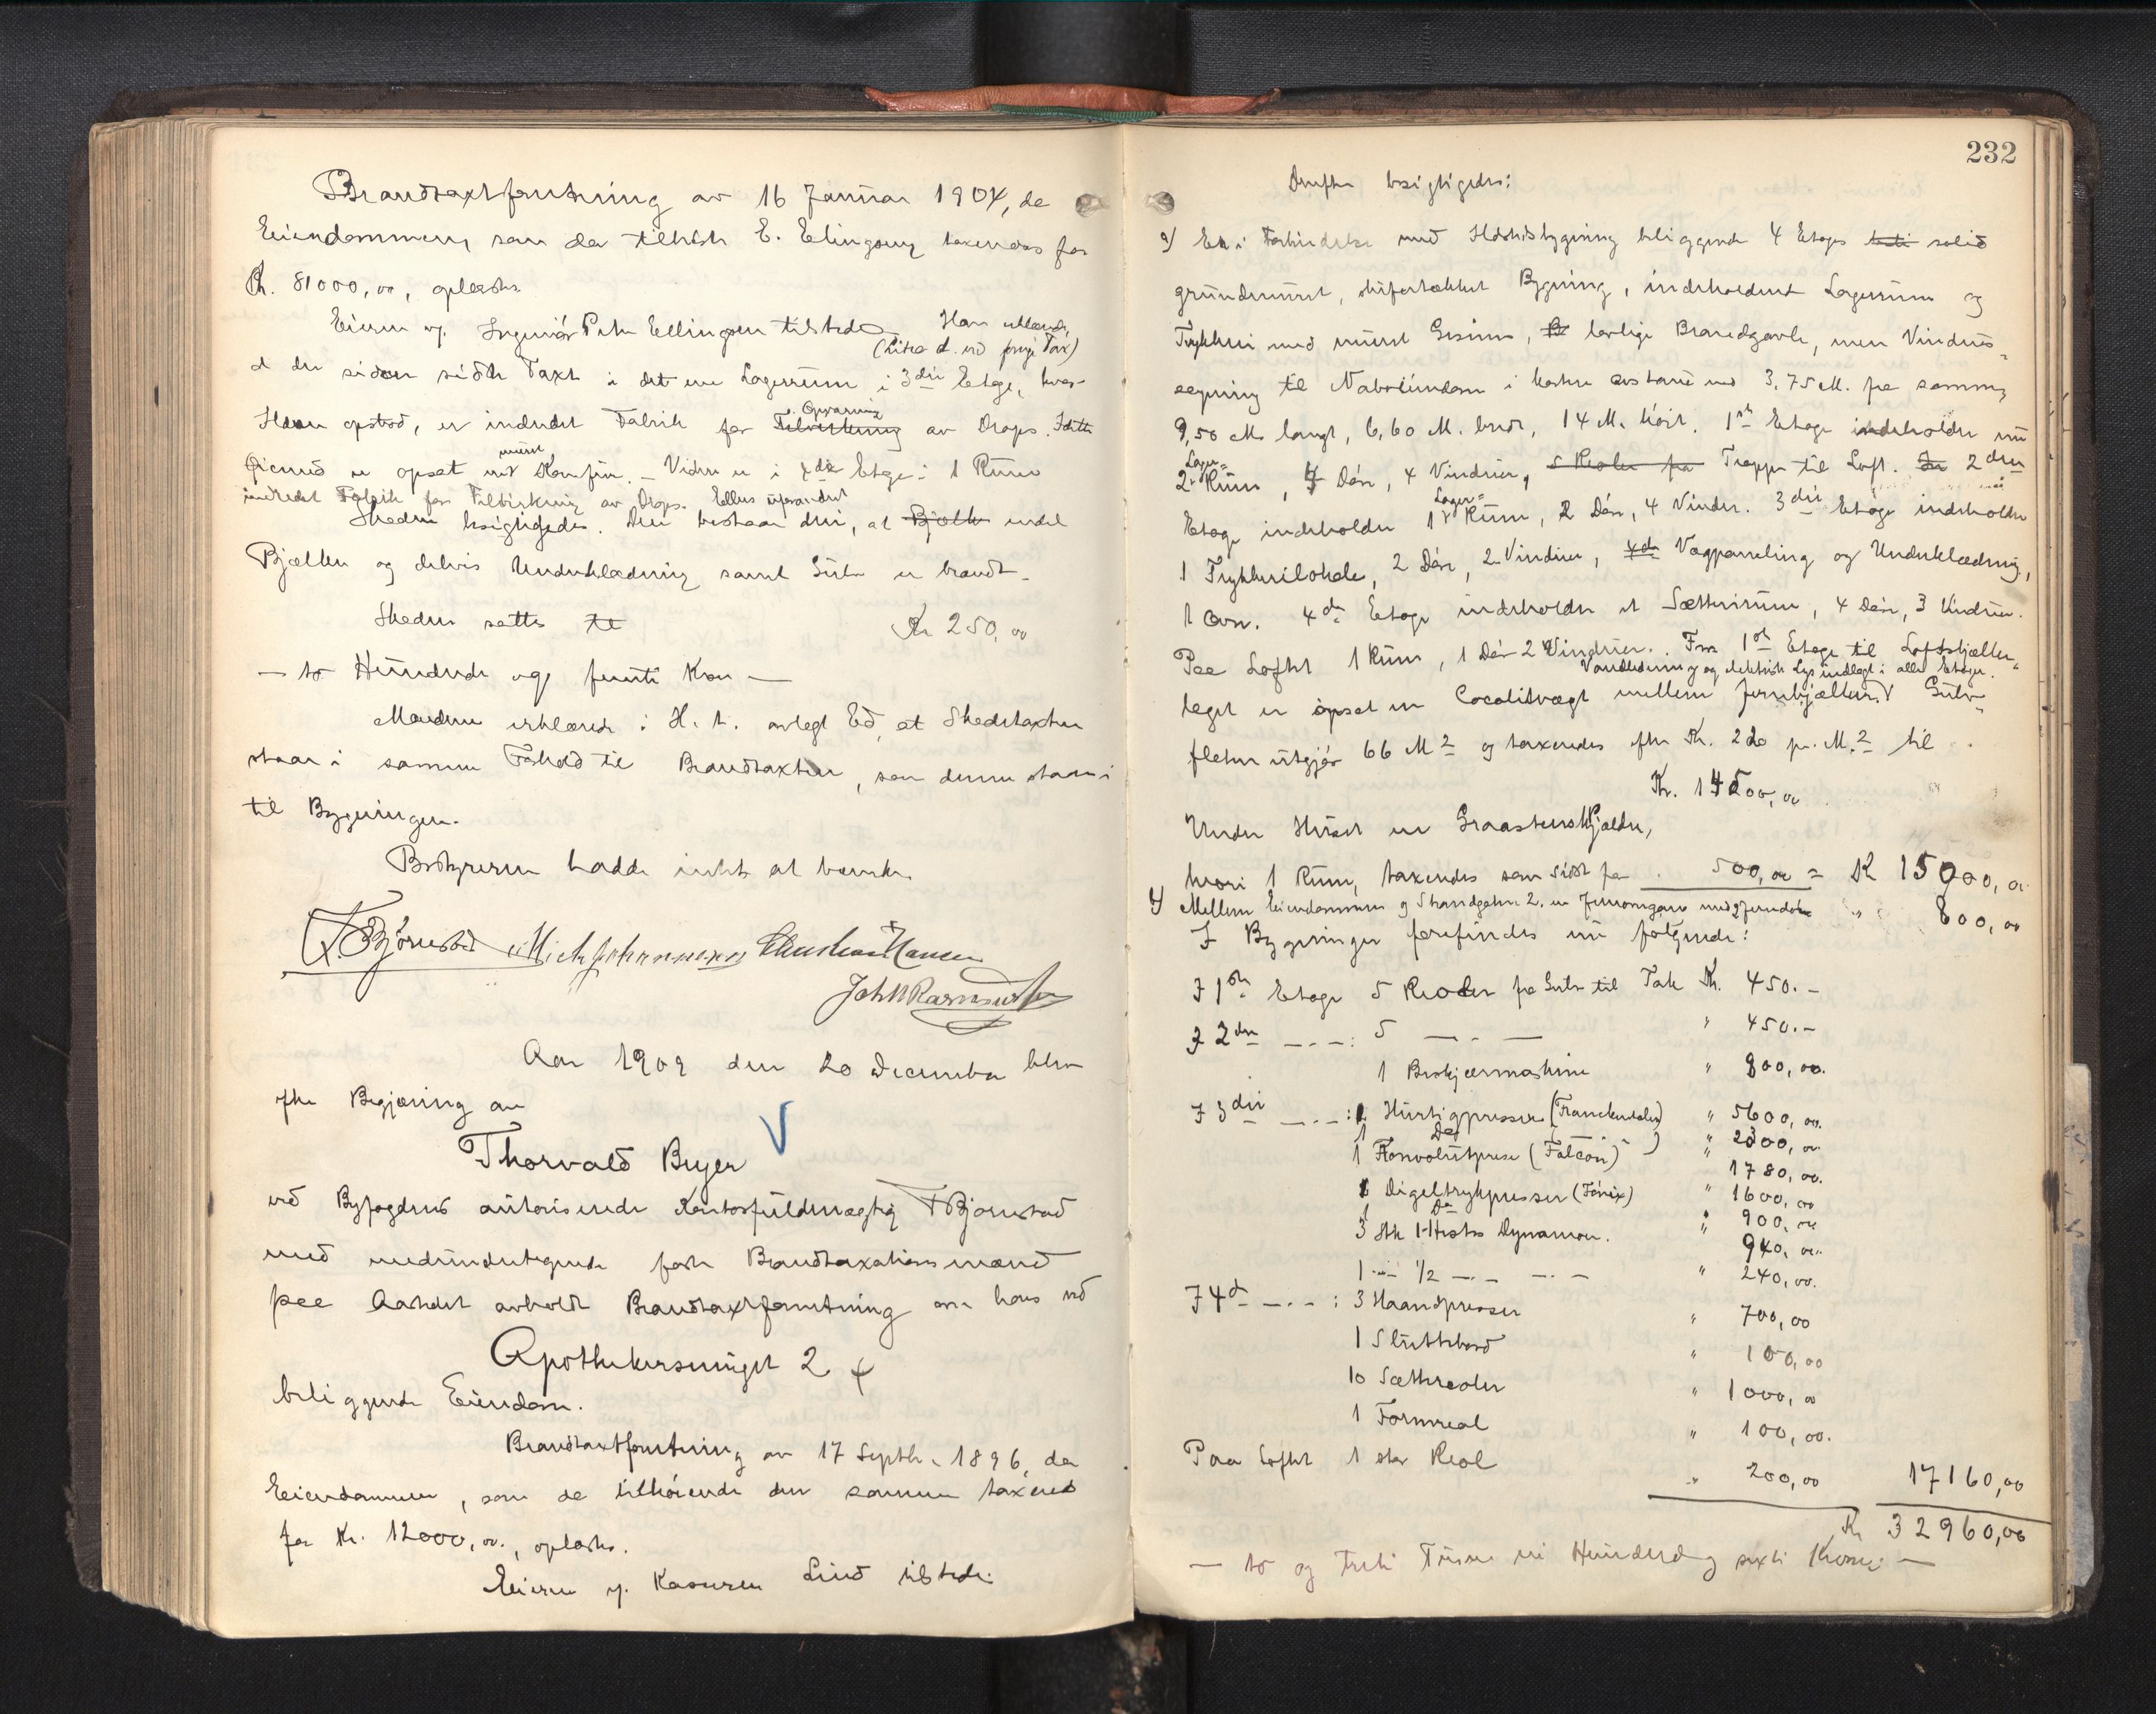 Brandtaxtforretning av 16 Januar 1904, da
Eiendommen, som da tilhørte E. Ellingsen, taxeredes for
Kr. 81000,00, oplæstes.
Eieren ved Ingeniør Peter Ellingsen tilstede. Han erklærede,
(Litra d. ved forrige Tax)
at der siden sidste Taxt i det ene Lagerrum i 3die Etage, hvor
Ilden opstod, er indredet Fabrik for Opvarming Tilvirkning av Drops. I dette
Øiemed er opsat muret Komfur. – Videre er i 4de Etage i 1 Rum
indredet Fabrik for Tilvirkning av Drops. Ellers uforandret
Skaden besigtigedes. Den bestaar deri, at Bjælk endel
Bjælker og delvis Underklædning samt Gulv er brændt.
Skaden sættes til Kr 250,00
– to Hundrede og femti Kroner –
Mændene erklærede i H. t. avlagt Ed, at Skadestaxten
staar i samme Forhold til Brandtaxten, som denne staar i
til Bygningen.
Bestyreren hadde intet at bemerke.
F Bjørnstad Mich Johannessen Christian Hansen
Joh N Rasmussen
Aar 1909 den 20 December blev
efter Begjæring av
Thorvald Beyer
ved Byfogdens autoriserede Kontorfuldmægtig F Bjørnstad
med medundertegnede faste Brandtaxationsmænd
paa Aastedet avholdt Brandtaxtforretning over hans ved
Apothekersmuget 2
beliggende Eiendom.
Brandtaxtforretning av 17 Septbr. 1896, da
Eiendommen, som da tilhørende den samme taxeredes
for Kr. 12000,00., oplæstes.
Eieren ved Kasserer Lind tilstede.
232
Derefter besigtigedes:
a) En i Forbindelse med Hovedbygning beliggende 4 Etages solid
grundmuret, skifertækket Bygning, indeholdende Lagerrum og
Trykkeri med muret Gesims, lovlige Brandgavle, men Vindues-
aapning til Naboeiendom i kortere avstand end 3,75 M. fra samme,
9,50 M. langt, 6,60 M. bredt, 14 M. høit. 1ste Etage indeholder nu
2 Lager-Rum, 4 Døre, 4 Vinduer, 5 Reoler fra Trappe til Loft. 2den
Etage indeholder 1 Lager-Rum, 2 Døre, 4 Vinduer. 3die Etage indeholder
1 Trykkerilokale, 2 Døre, 2 Vinduer, Vægpaneling og Underklædning,
1 Ovn. 4de Etage indeholder et Sætterirum, 4 Døre, 3 Vinduer.
Paa Loftet 1 Rum, 1 Dør 2 Vinduer. Fra 1ste Etage til Loftsbjælke-
Vandledning og elektrisk Lys indlagt i alle Etager.
laget er opsat en Cocolitvægt mellem Jernbjælker. Gulv-
fladen utgjør 66 M2 og taxeredes efter Kr. 220 pr. M.2 til
Kr. 14500,00
Under Huset er Graastenskjælder,
hvori 1 Rum, taxeredes som sidst for 500,00 = Kr 15000,00
b) Mellem Eiendommen og Strandgaten 2. er Jernomgang med 2 Jerndøre " 800,00
I Bygningen forefindes nu følgende:
I 1ste Etage 5 Reoler fra Gulv til Tak Kr. 450.–
I 2den – . – : 5 – . – " 450.–
1 Beskjærmaskine " 800,00.
I 3die – . – : 1 Hurtigpresse (Frankenthaler) " 5600,00.
1 Do " 2300,00
1 Konvolutpresse (Falcon) " 1780,00.
1 Digeltrykpresser (Fønix) " 1600,00
1 Do " 900,00
3 Stk 1-Hestes Dynamoer. " 940,00.
1 – 1/2 – . – " 240,00.
I 4de – . – : 3 Haandpresser " 700,00
1 Sluttebord " 100,00
10 Sætterreoler " 1000,00
1 Formreol " 100,00.
Paa Loftet 1 stor Reol " 200,00 17160,00
Kr 32960,00
– to og treti Tusen ni Hundrede og sexti Kroner –